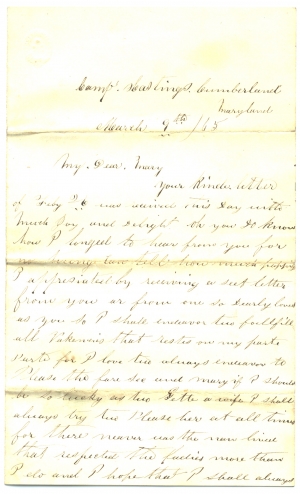 Camp. Hastings. Cumberland
Maryland
March 9th /65
My. Dear. Mary
Your Kinde letter
of 26 was recived this Day with
much Joy. and Delight oh you do know
how I longed to hear from you for
no being can tell how much
I appresiated by receiving a sut letter
from you or from one so dearly loved
as you so I shall endeavor two fullfill
all that rests on my parts
parts for I love two always endeavor to
Please the fare sex and mary if I should
be so lucky as two Gette a wife I shall
always try two Please her at all times
for there neaver was the man lived
that respected the ladies more than
I do and I hope that I shall always